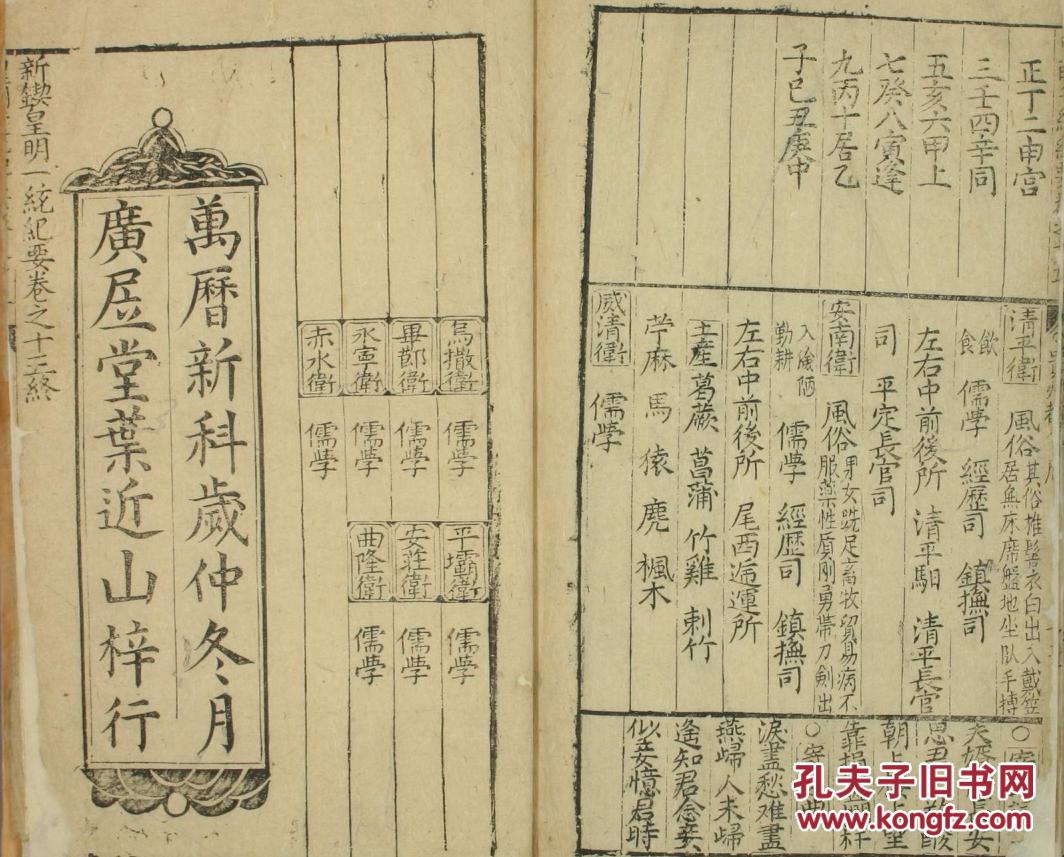 正丁二申宮
三壬四辛同
五亥六甲上
七癸八寅逢
九丙十居乙
子巳丑庚中
清平衛 風俗 其俗椎髻衣白出入戴笠
居無床席盤地坐臥手摶
飲食 儒學 經歷司 鎮撫司
左右中前後所 清平馹 清平長官
司 平定長官司
安南衛 風俗 男女跣足畜牧貿易病不
服藥性質剛勇帶刀劍出
入
勤耕 儒學 經歷司 鎮撫司
左右中前後所 尾西逓運所
土產 葛蕨 菖蒲 竹雞 刺竹
苧麻 馬 猿 麂 楓木
威清衛 儒學
朝
淚盡愁难盡
燕歸人未歸
遙知君念妾
似妾憶君時
烏撒衛 儒學 平壩衛 儒學
畢節衛 儒學 安莊衛 儒學
永寧衛 儒學 曲隆衛 儒學
赤水衛 儒學
萬曆新科歲仲冬月
廣居堂葉近山梓行
新鍥皇明一統紀要卷之十三終
孔夫子旧书网
www.kongfz.com